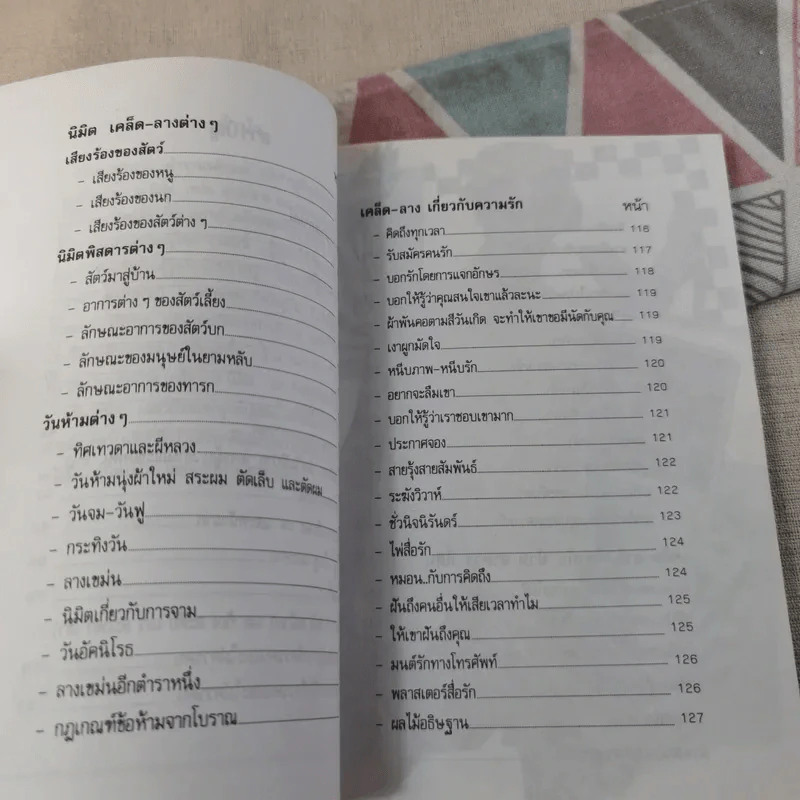 นิมิต เคล็ด-ลางต่าง ๆ
เสียงร้องของสัตว์
- เสียงร้องของหนู
- เสียงร้องของนก
- เสียงร้องของสัตว์ต่าง ๆ
นิมิตพิสดารต่าง ๆ
- สัตว์มาสู่บ้าน
- อาการต่าง ๆ ของสัตว์เลี้ยง
- ลักษณะอาการของสัตว์บก
- ลักษณะของมนุษย์ในยามหลับ
- ลักษณะอาการของทารก
วันห้ามต่าง ๆ
- ทิศเทวดาและผีหลวง
- วันห้ามนุ่งผ้าใหม่ สระผม ตัดเล็บ และตัดผม
- วันจม-วันฟู
- กระทิงวัน
- ลางเขม่น
- นิมิตเกี่ยวกับการจาม
- วันอัคนิโรธ
- ลางเขม่นอีกตำราหนึ่ง
- กฎเกณฑ์ข้อห้ามจากโบราณ
เคล็ด-ลาง เกี่ยวกับความรัก หน้า
- คิดถึงทุกเวลา 116
- รับสมัครคนรัก 117
- บอกรักโดยการแจกอักษร 118
- บอกให้รู้ว่าคุณสนใจเขาแล้วละนะ 119
- ผ้าพันคอตามสีวันเกิด จะทำให้เขาขอมีนัดกับคุณ 119
- เงาผูกมัดใจ 119
- หนีบภาพ-หนีบรัก 120
- อยากจะลืมเขา 120
- บอกให้รู้ว่าเราชอบเขามาก 121
- ประกาศจอง 121
- สายรุ้งสายสัมพันธ์ 122
- ระฆังวิวาห์ 122
- ชั่วนิจนิรันดร์ 123
- ไพ่สื่อรัก 124
- หมอน..กับการคิดถึง 124
- ฝันถึงคนอื่นให้เสียเวลาทำไม 125
- ให้เขาฝันถึงคุณ 125
- มนต์รักทางโทรศัพท์ 126
- พลาสเตอร์สื่อรัก 126
- ผลไม้อธิษฐาน 127